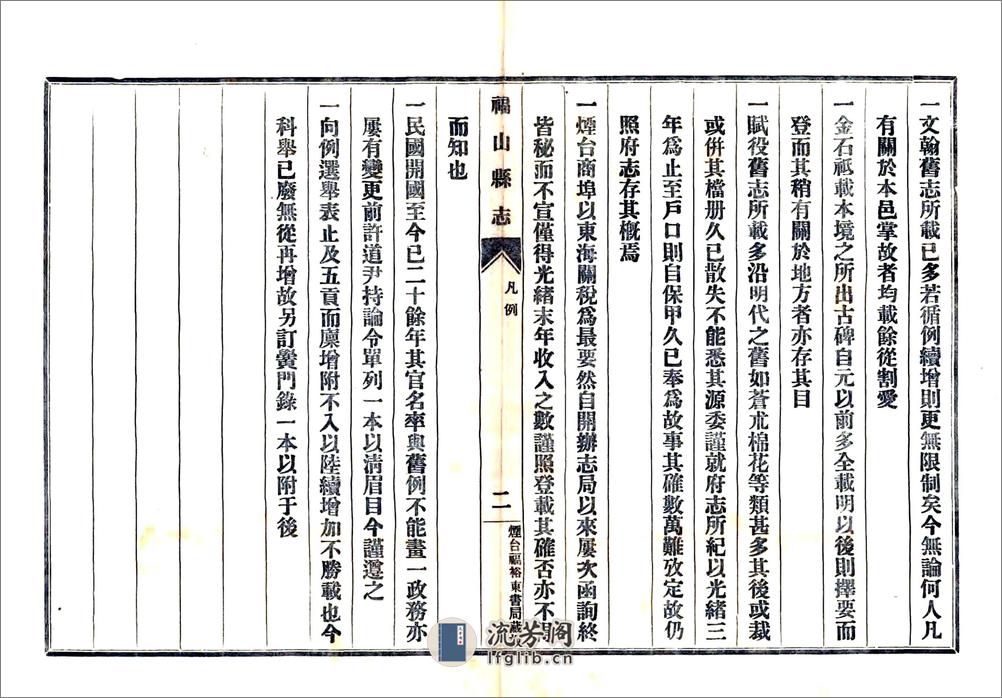 一文翰舊志所載已多若循例續增則更無限制矣今無論何人凡
有關於本邑掌故者均載餘從割愛
一金石祇載本境之所出古碑自元以前多全載明以後則擇要而
登而其稍有關於地方者亦存其目
一賦役舊志所載多沿明代之舊如蒼朮棉花等類甚多其後或裁
或併其檔册久已散失不能悉其源委謹就府志所紀以光緒三
年爲止至戶口則自保甲久已奉爲故事其確數萬難攷定故仍
照府志存其槪焉
一煙台商埠以東海關稅爲最要然自開辦志局以來屢次函詢終
皆秘而不宣僅得光緒末年收入之數謹照登載其確否亦不
福山縣志
凡例
二
煙台福裕東書局
而知也
一民國開國至今已二十餘年其官名率與舊例不能畫一政務亦
屢有變更前許道尹持論令單列一本以淸眉目今謹遵之
一向例選舉表止及五貢而廩增附不入以陸續增加不勝載也今
科舉已廢無從再增故另訂黌門錄一本以附于後
流芳閣
lfglib.cn